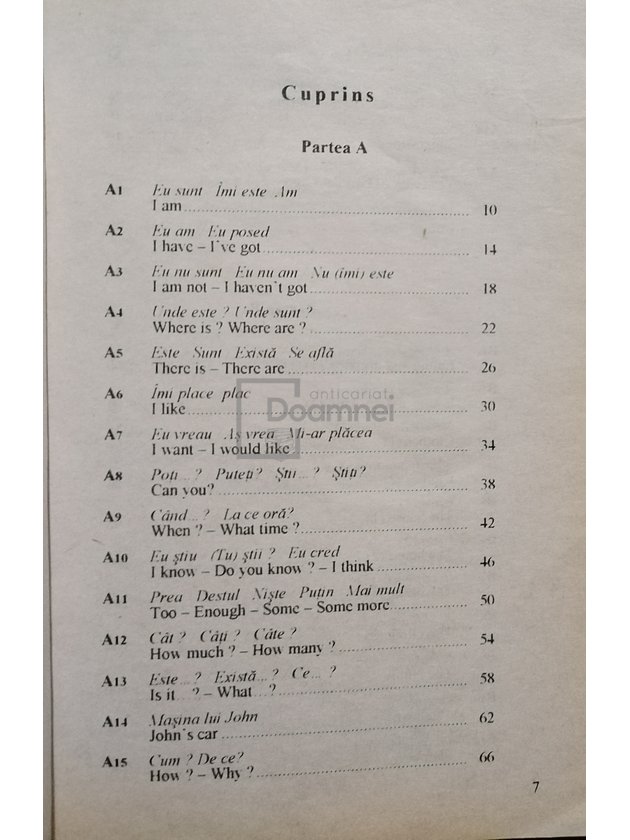 Cuprins
Partea A
A1 Eu sunt Îmi este Am
I am 10
A2 Eu am Eu posed
I have – I've got 14
A3 Eu nu sunt Eu nu am Nu (îmi) este
I am not – I haven't got 18
A4 Unde este ? Unde sunt ?
Where is ? Where are ? 22
A5 Este Sunt Există Se află
There is – There are 26
A6 Îmi place plac
I like 30
anticariat
Doamnei
A7 Eu vreau Aș vrea Mi-ar plăcea
I want – I would like 34
A8 Poți ...? Puteți? Știi ...? Știți?
Can you? 38
A9 Când...? La ce oră?
When ? – What time ? 42
A10 Eu știu (Tu) știi ? Eu cred
I know – Do you know ? – I think 46
A11 Prea Destul Niște Puțin Mai mult
Too – Enough – Some – Some more 50
A12 Cât ? Câți ? Câte ?
How much ? – How many ? 54
A13 Este... ? Există...? Ce... ?
Is it... ? – What...? 58
A14 Mașina lui John
John's car 62
A15 Cum ? De ce?
How ? – Why ? 66
7